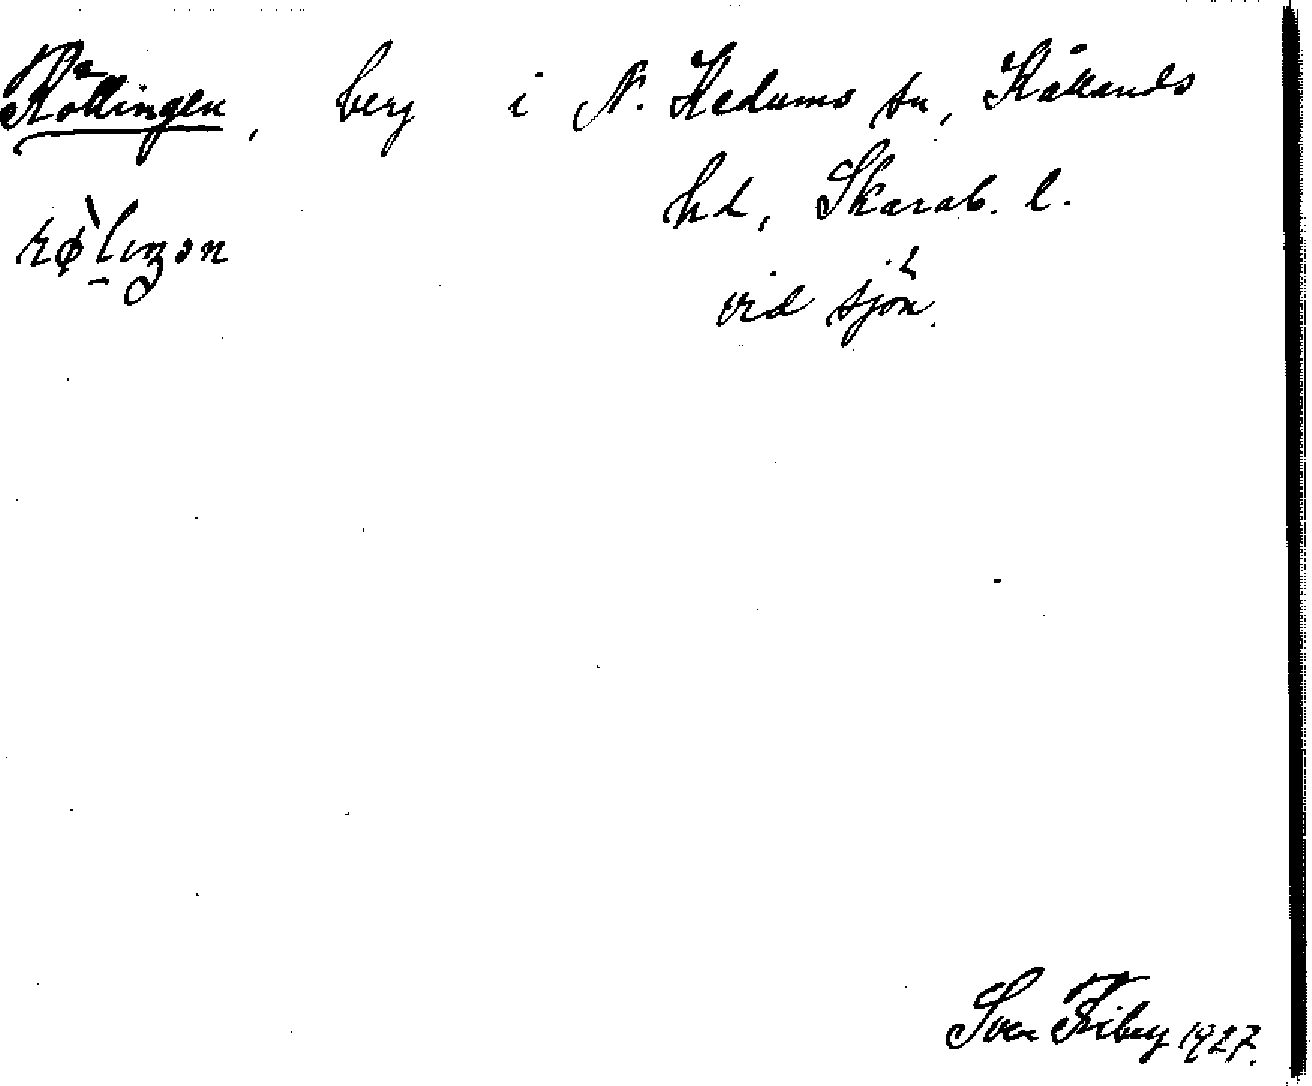 Röllingen, berg i N. Kedums sn, Kållands
hd, Skarab. l.
vid sjön.
Sven Friberg 1927.